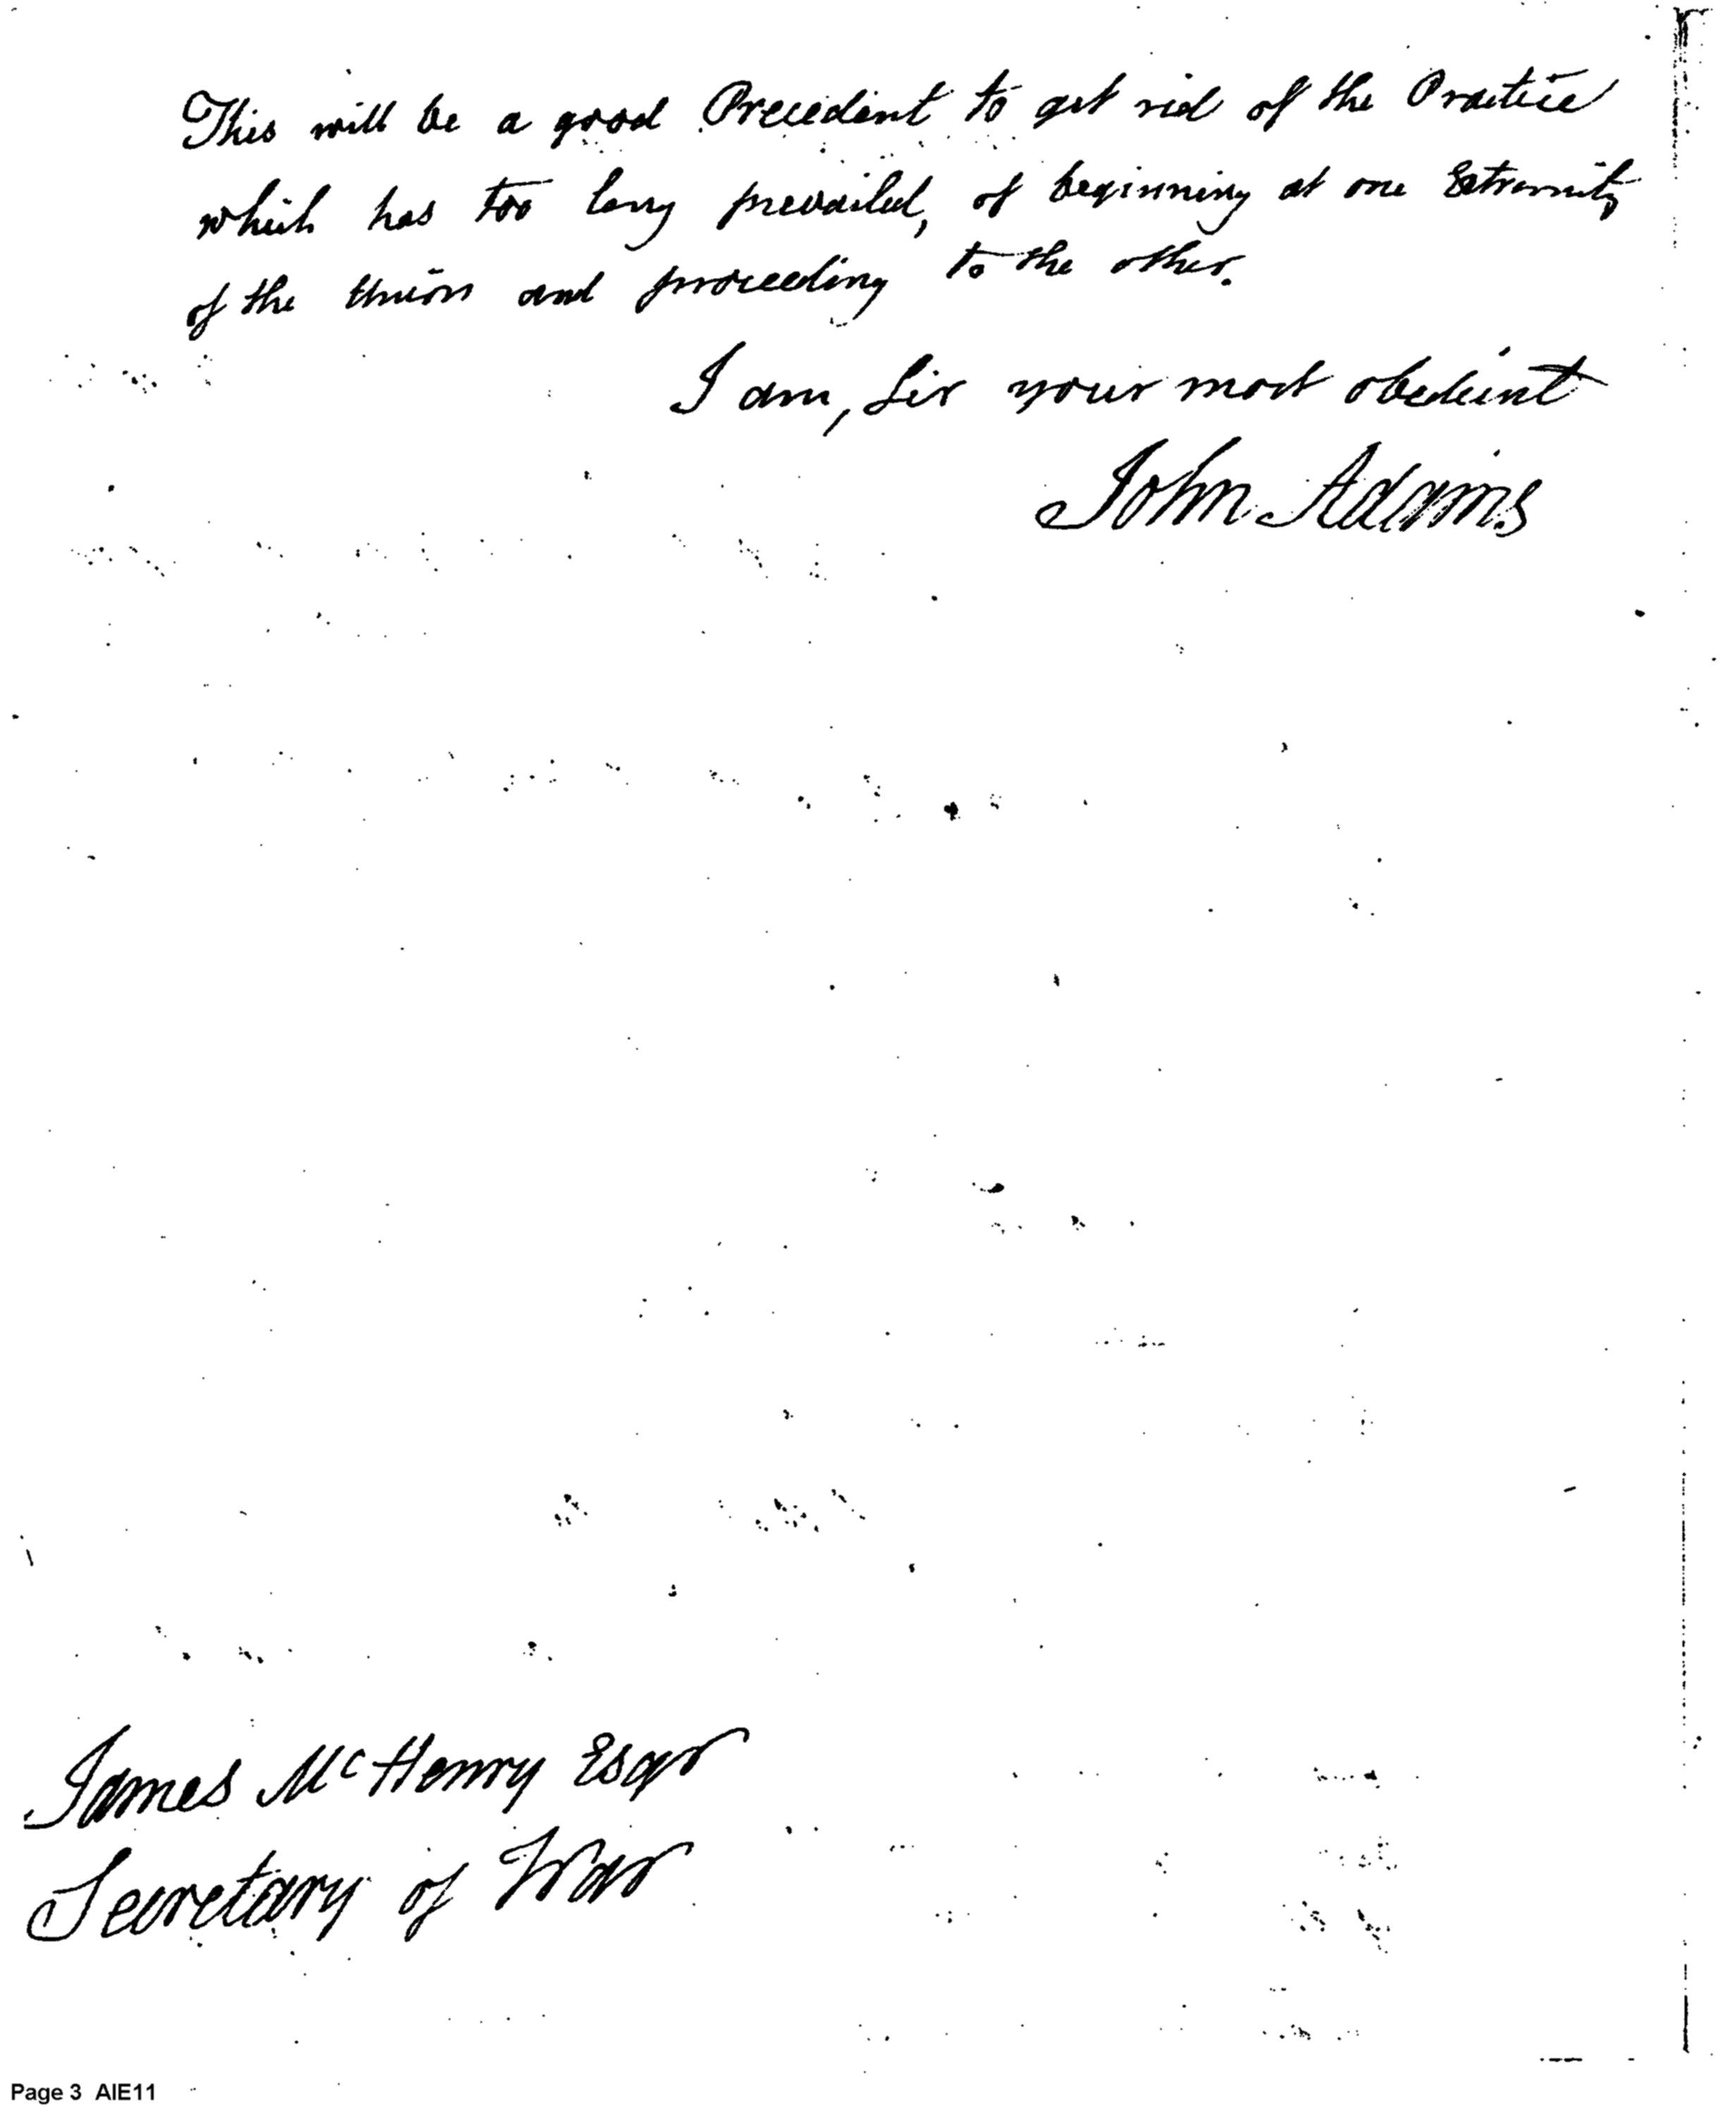 This will be a good Precedent to get rid of the Practice
which has too long prevailed, of beginning at one Extremity
of the Union and proceeding to the other.
I am, Sir your most obedient
John Adams
James McHenry Esqr
Secretary of War
Page 3 AIE11